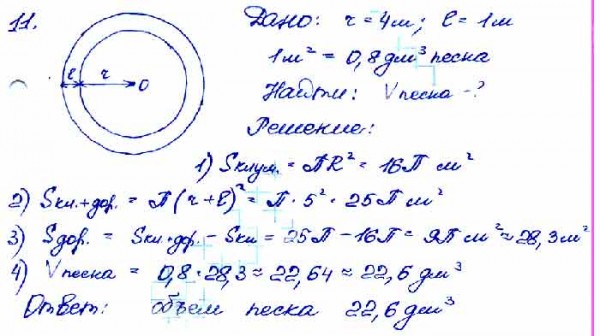 11.
Дано: r = 4м; l = 1м
1м² = 0,8 дм³ песка
Найти: Vпеска - ?
l r O
Решение:
1) Sклум. = ПR² = 16П м²
2) Sкл.+дор. = П(r + l)² = П · 5² · 25П м²
3) Sдор. = Sкл+дор. - Sкл = 25П - 16П = 9П м² ≈ 28,3 м²
4) Vпеска = 0,8 · 28,3 ≈ 22,64 ≈ 22,6 дм³
Ответ: объем песка 22,6 дм³